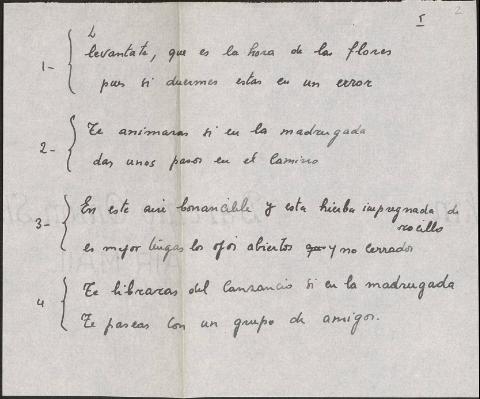 I 2
L
1- levantate, que es la hora de las flores
pues si duermes estas en un error
2- Te animaras si en la madrugada
das unos pasos en el camino
3- En este aire bonancible y esta hierba impregnada de
rocillo
es mejor tengas los ojos abiertos y no cerrados
4 Te libraras del Cansancio si en la madrugada
Te paseas con un grupo de amigos.